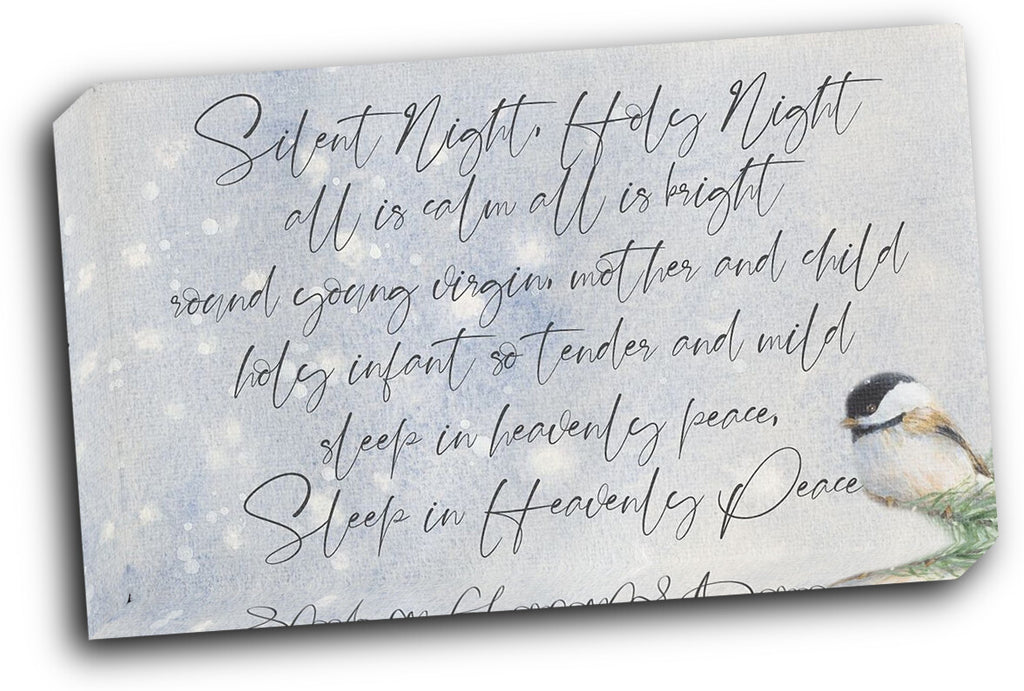 Silent Night, Holy Night
all is calm all is bright
round young virgin, mother and child
holy infant so tender and mild
sleep in heavenly peace,
Sleep in Heavenly Peace